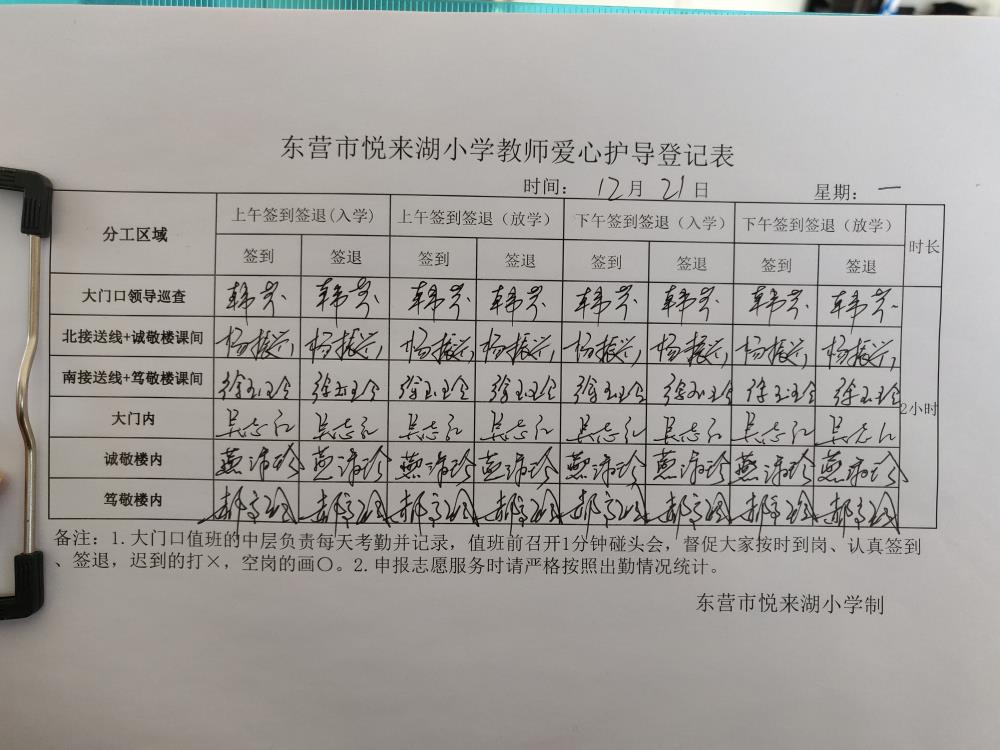 东营市悦来湖小学教师爱心护导登记表
时间： 12月 21日 星期： 一
分工区域 上午签到签退(入学) 上午签到签退（放学） 下午签到签退（入学） 下午签到签退（放学） 时长
签到 签退 签到 签退 签到 签退 签到 签退
大门口领导巡查 韩芳 韩芳 韩芳 韩芳 韩芳 韩芳 韩芳 韩芳
北接送线+诚敬楼课间 杨振兴 杨振兴 杨振兴 杨振兴 杨振兴 杨振兴 杨振兴 杨振兴
南接送线+笃敬楼课间 徐玉玲 徐玉玲 徐玉玲 徐玉玲 徐玉玲 徐玉玲 徐玉玲 徐玉玲
2小时
大门内 吴志红 吴志红 吴志红 吴志红 吴志红 吴志红 吴志红 吴志红
诚敬楼内
笃敬楼内
备注：1.大门口值班的中层负责每天考勤并记录，值班前召开1分钟碰头会，督促大家按时到岗、认真签到
、签退，迟到的打×，空岗的画〇。2.申报志愿服务时请严格按照出勤情况统计。
东营市悦来湖小学制